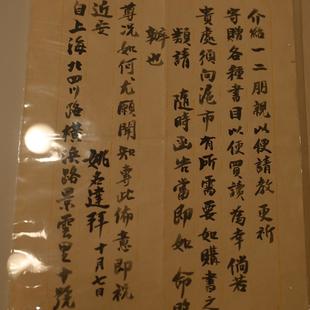 介紹一二朋親以便請教 更祈
寄贈各種書目以便買讀為幸 倘若
貴處須向滬市有所需要如購書之
類請 隨時函告當即如 命照
辦也
尊况如何尤願聞知專此佈意即祝
近安
姚名達拜 十月七日
自上海北四川路橫浜路景雲里十號